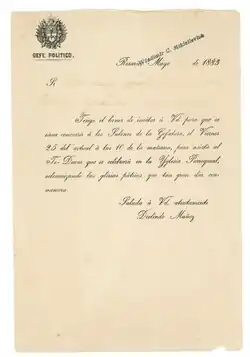 GEFE POLITICO.
Mayo de 1883
Tengo el honor de invitar á Vd. para que se
sirva concurrir á los Salones de la Gefatura, el Viernes
25 del actual á las 10 de la mañana, para asistir al
Te-Deum que se celebrará en la Yglesia Parroquial,
solemnizando las glorias patrias que tan gran dia con-
memora.
Saluda á Vd. atentamente
Deolindo Muñoz